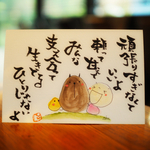 頑張りすぎなくて
いいよ
頼って甘えて
みんな
支え合って
生きてる
ひとりじゃないよ